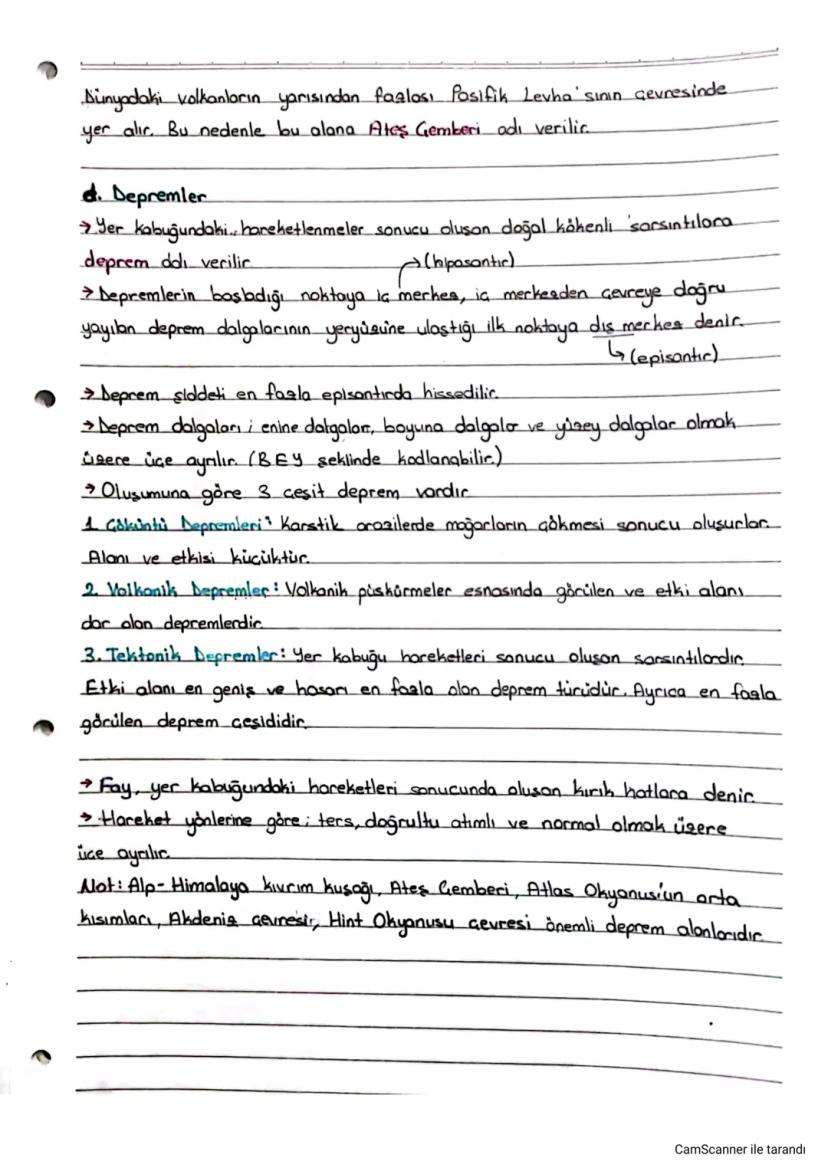 Dünyadaki volkanların yarısından fazlası Pasifik Levha'sının çevresinde
yer alır. Bu nedenle bu alana Ateş Çemberi adı verilir.
d. Depremler
→ Yer kabuğundaki hareketlenmeler sonucu oluşan doğal kökenli sarsıntılara
deprem adı verilir.
→(hiposantır)
→ Depremlerin başladığı noktaya iç merkez, iç merkezden çevreye doğru
yayılan deprem dalgalarının yeryüzüne ulaştığı ilk noktaya dış merkez denir.
↳(episantır)
→ Deprem şiddeti en fazla episantırda hissedilir.
→ Deprem dalgaları ; enine dalgaları, boyuna dalgalar ve yüzey dalgalar olmak
üzere üçe ayrılır. (BEY şeklinde kodlanabilir.)
→ Oluşumuna göre 3 çeşit deprem vardır
1. Çöküntü Depremleri: Karstik arazilerde mağarların çökmesi sonucu oluşurlar.
Alanı ve etkisi küçüktür.
2. Volkanik Depremler: Volkanik püskürmeler esnasında görülen ve etki alanı
dar olan depremlerdir.
3. Tektonik Depremler: Yer kabuğu hareketleri sonucu oluşan sarsıntılardır.
Etki alanı en geniş ve hasarı en fazla olan deprem türüdür. Ayrıca en fazla
görülen deprem çeşididir.
→ Fay, yer kabuğundaki hareketleri sonucunda oluşan kırık hatlara denir.
→ Hareket yönlerine göre ; ters, doğrultu atımlı ve normal olmak üzere
üçe ayrılır.
Not: Alp-Himalaya kıvrım kuşağı, Ateş Çemberi, Atlas Okyanus'un orta
kısımları, Akdeniz çevresi, Hint Okyanusu çevresi önemli deprem alanlarıdır.
CamScanner ile tarandı